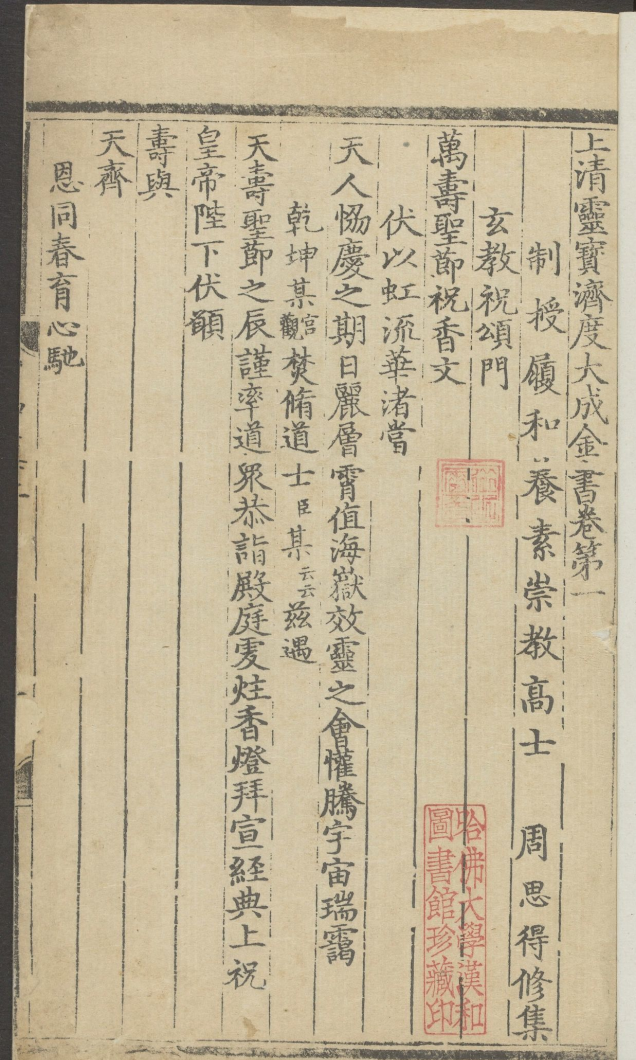 上清靈寶濟度大成金書卷第一
制授履和養素崇教高士 周思得修集
玄教祝頌門
萬壽聖節祝香文
伏以虹流華渚當
天人恊慶之期日麗層霄值海嶽效靈之會懽騰宇宙瑞靄
乾坤某宮觀焚脩道士臣某云云兹遇
天壽聖節之辰謹率道衆恭詣殿庭䖍炷香燈拜宣經典上祝
皇帝陛下伏願
壽與
天齊
恩同春育心馳
哈佛大學漢和
圖書館珍藏印